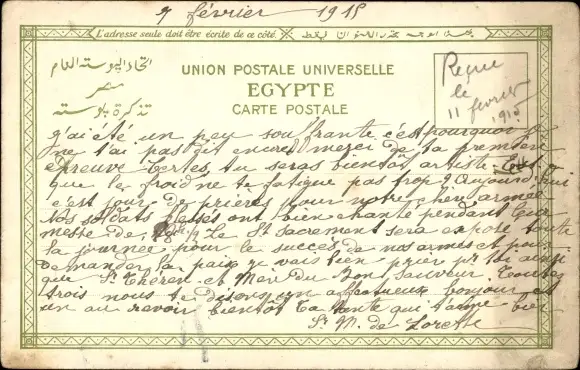 7 février 1915
L'adresse seule doit être écrite de ce côté.
اتحاد البوستة العام
مصر
تذكرة بوستة
UNION POSTALE UNIVERSELLE
EGYPTE
CARTE POSTALE
Reçue
le
11 février
1915
j'ai été un peu souffrante c'est pourquoi je
ne t'ai pas dit encore merci de ta première
épreuve. Certes, tu seras bientôt artiste. Est-ce
que le froid ne te fatigue pas trop? Aujourd'hui
c'est jour de prières pour notre chère armée
Nos soldats blessés ont bien chanté pendant leur
messe de Le St Sacrement sera exposé toute
la journée pour le succès de nos armes et pour
demander la paix je vais bien prier pr toi ainsi
que Sr Thérèse et Mère du Bon Sauveur. Toutes
trois nous te disons un affectueux bonjour et
un au revoir bientôt ta tante qui t'aime bien
Sr M. de Lorette